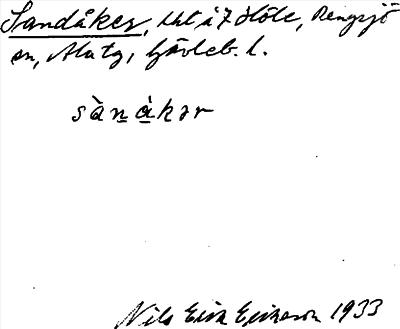 Sandåker, Uht. i 7 Höle, Rengsjö
sn, Alfta, Gävleb. l.
sàn̲à̲kər
Nils Eric Ericsson 1933